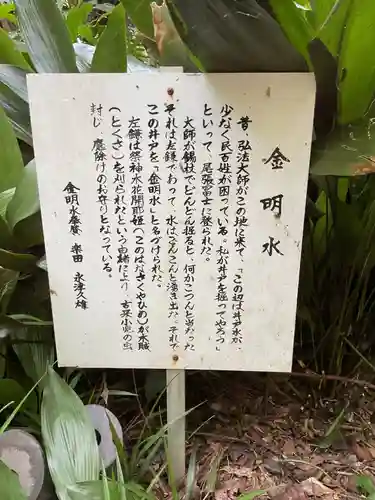 金明水
昔、弘法大師がこの地に来て、「この辺は井戸水が、
少なく民百姓が困っている。私が井戸を掘ってやろう」
といって、尾張冨士に登られた。
大師が錫杖でどんどん掘ると、何かこつんと
それは左鎌であって、水はこんこんと湧き出た。それで
この井戸を「金明水」と名づけられた。
左鎌は祭神木花開耶姫(このはなさくやひめ)が木賊
(とくさ)を刈られたという由緒により、古来小児の虫
封じ、魔除けのお守りとなっている。
金明水奉賛 楽田 永津久雄